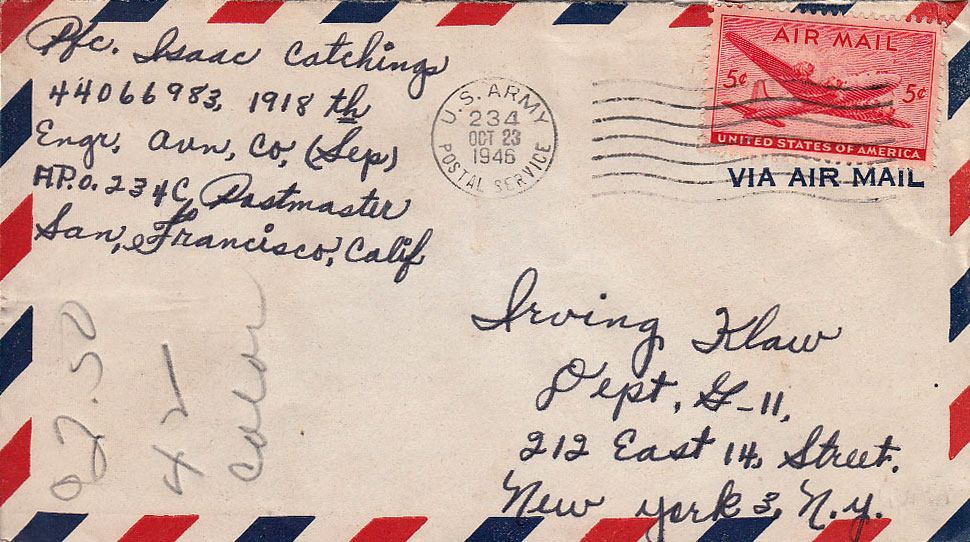 Pfc. Isaac Catchings
44066983, 1918 th
Engr, Avn, Co, (Sep)
A.P.O. 234 C, Postmaster
San, Francisco, Calif
U.S. ARMY
234
OCT 23
1946
POSTAL SERVICE
AIR MAIL
5¢ 5¢
UNITED STATES OF AMERICA
VIA AIR MAIL
Irving Klaw
Dept, G-11,
212 East 14, Street.
New York 3, N.y.
42
Color